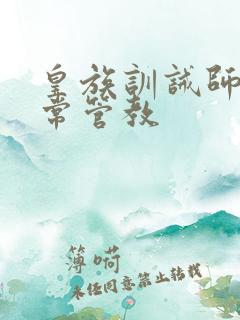 皇族訓誡師
常管教
簿嗬
未经同意禁止转载